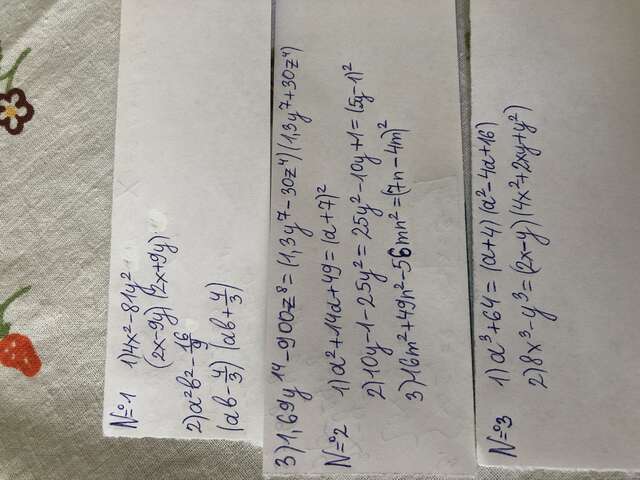 №1 1) 4x²-81y²
(2x-9y) (2x+9y)
2) a²b²-16/9
(ab-4/3) (ab+4/3)
3) 1,69y¹⁴-900z⁸=(1,3y⁷-30z⁴)(1,3y⁷+30z⁴)
№2 1) a²+14a+49=(a+7)²
2) 10y-1-25y²=25y²-10y+1=(5y-1)²
3) 16m²+49n²-56mn²=(7n-4m)²
№3 1) a³+64=(a+4)(a²-4a+16)
2) 8x³-y³=(2x-y)(4x²+2xy+y²)